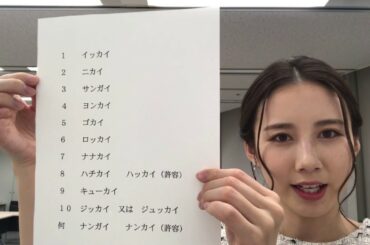 1 イッカイ
2 ニカイ
3 サンガイ
4 ヨンカイ
5 ゴカイ
6 ロッカイ
7 ナナカイ
8 ハチカイ ハッカイ（許容）
9 キューカイ
10 ジッカイ 又は ジュッカイ
何 ナンガイ ナンカイ（許容）